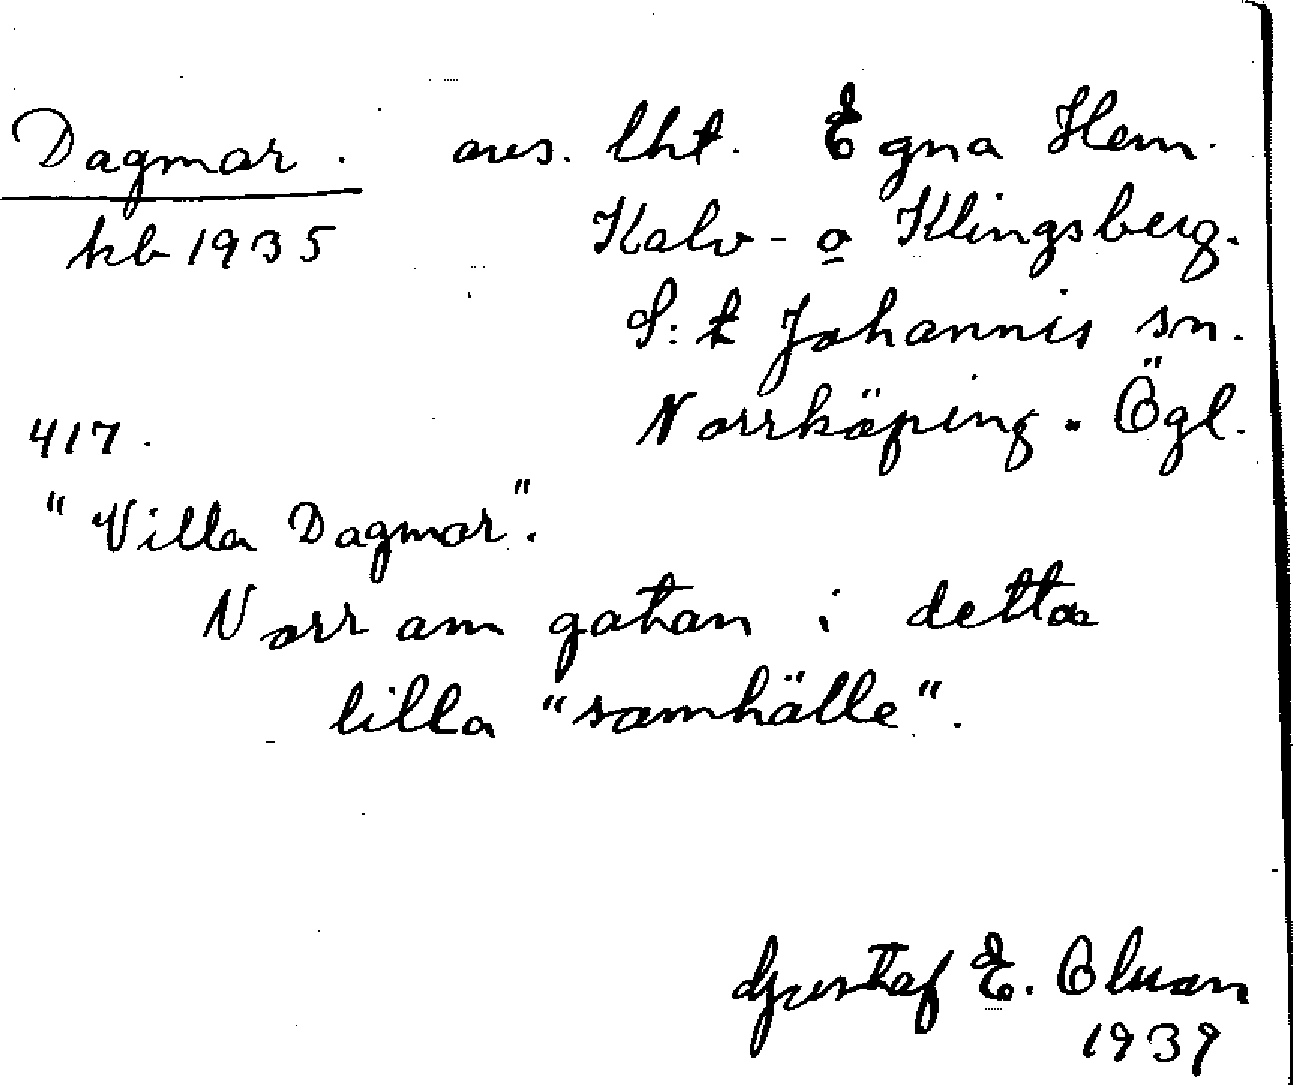 Dagmar. avs. lht. Egna Hem.
kb 1935 Kalv- o Klingsberg.
S:t Johannis sn.
417. Norrköping. Ögl.
"Villa Dagmar".
Norr om gatan i detta
lilla "samhälle".
Gustaf E. Olsson
1939